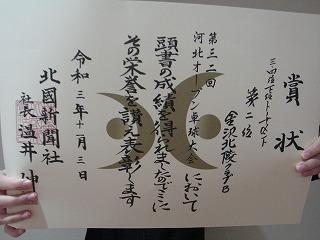 賞状
三四位下位トーナメント
第二位
金沢北陵高等B
第三二回
河北オープン卓球大会において
頭書の成績を得られましたのでここに
その栄誉を讃え表彰します
令和三年十一月三日
北國新聞社
社長 温井 伸